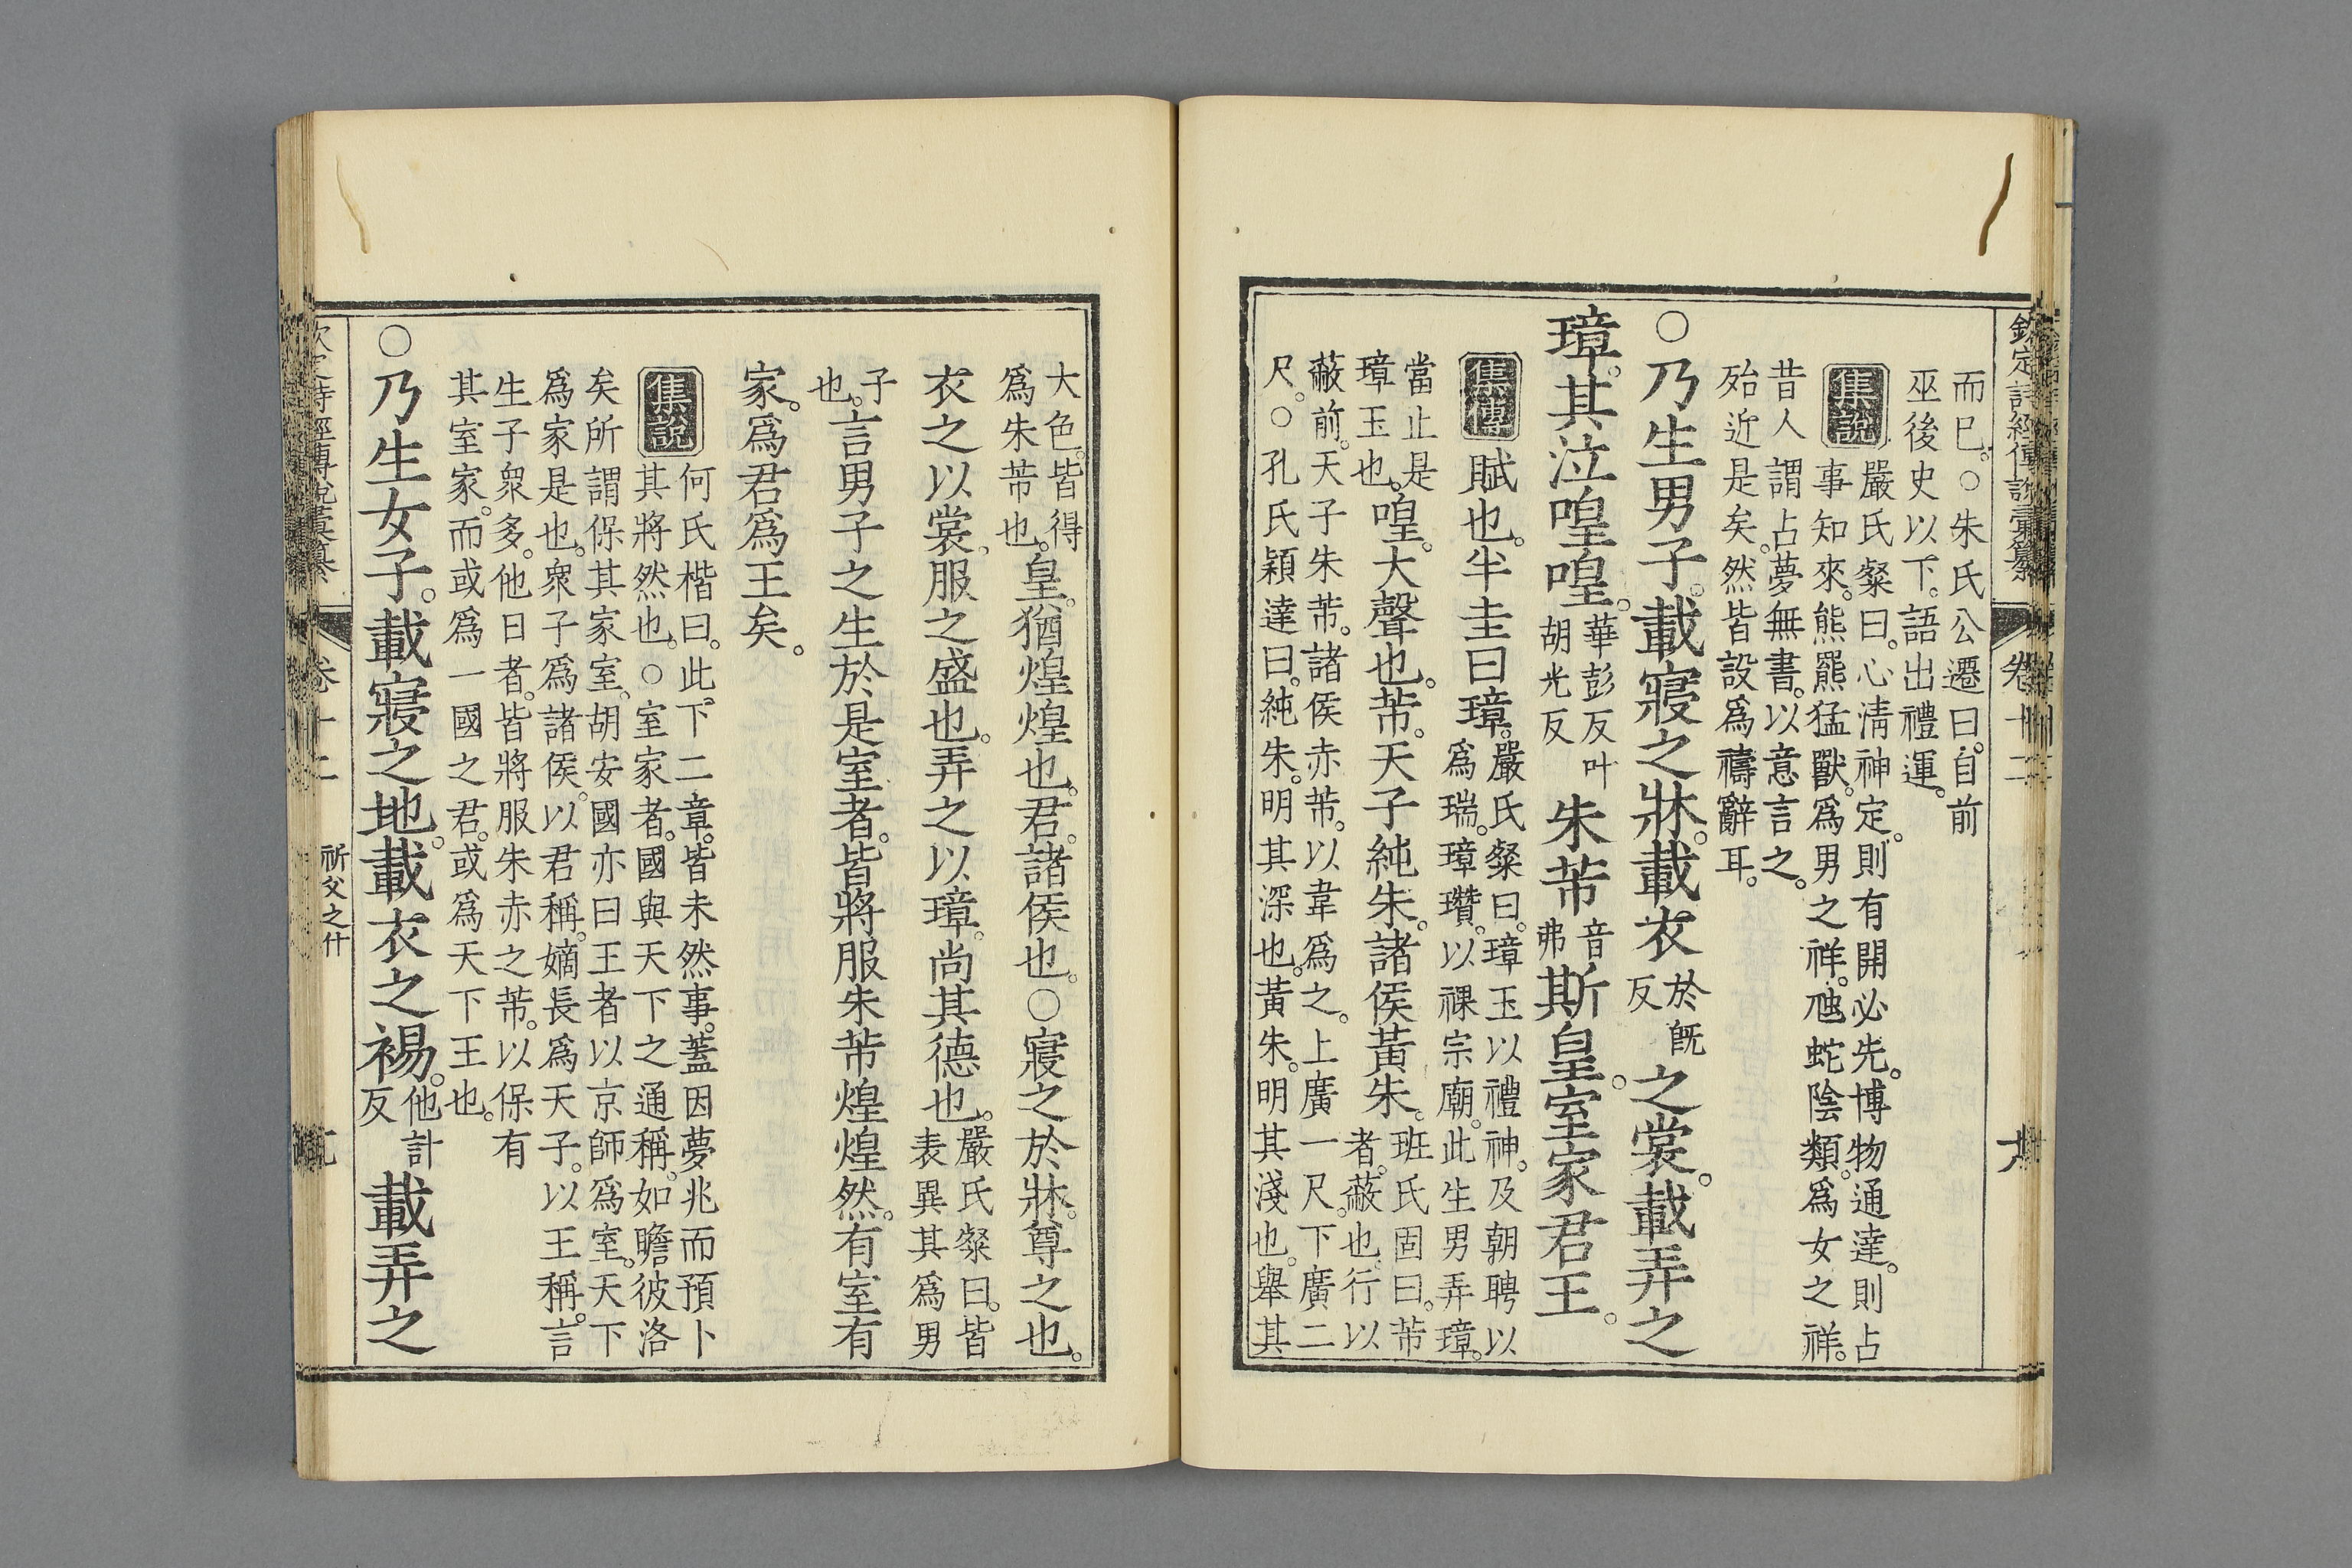 欽定詩經傳說彙纂 卷十二
而巳。○朱氏公遷曰。自前
巫後史以下。語出禮運。
集說 嚴氏粲曰。心淸神定。則有開必先。博物通達。則占
事知來。熊羆猛獸。爲男之祥。虺蛇陰類。爲女之祥。
昔人謂占夢無書。以意言之。
殆近是矣。然皆設爲禱辭耳。
○乃生男子。載寢之牀。載衣於旣反之裳。載弄之
璋。其泣喤喤。華彭反叶胡光反朱芾音弗斯皇。室家君王。
集傳 賦也。半圭曰璋。嚴氏粲曰。璋玉以禮神。及朝聘以爲瑞。璋瓚。以祼宗廟。此生男弄璋。
當止是璋玉也。喤。大聲也。芾。天子純朱。諸侯黃朱。班氏固曰。芾者。蔽也。行以
蔽前。天子朱芾。諸侯赤芾。以韋爲之。上廣一尺。下廣二
尺。○孔氏穎達曰。純朱。明其深也。黃朱。明其淺也。舉其
大色。皆得爲朱芾也。皇。猶煌煌也。君。諸侯也。○寢之於牀。尊之也。
衣之以裳。服之盛也。弄之以璋。尚其德也。嚴氏粲曰。皆表異其爲男
子也。言男子之生於是室者。皆將服朱芾煌煌然。有室有
家。爲君爲王矣。
集說 何氏楷曰。此下二章。皆未然事。蓋因夢兆而預卜
其將然也。○室家者。國與天下之通稱。如瞻彼洛
矣所謂保其家室。胡安國亦曰王者以京師爲室。天下
爲家是也。衆子爲諸侯。以君稱。嫡長爲天子。以王稱。言
生子衆多。他日者。皆將服朱赤之芾。以保有
其室家。而或爲一國之君。或爲天下王也。
○乃生女子。載寢之地。載衣之裼。他計反載弄之
欽定詩經傳說彙纂 卷十二 祈父之什